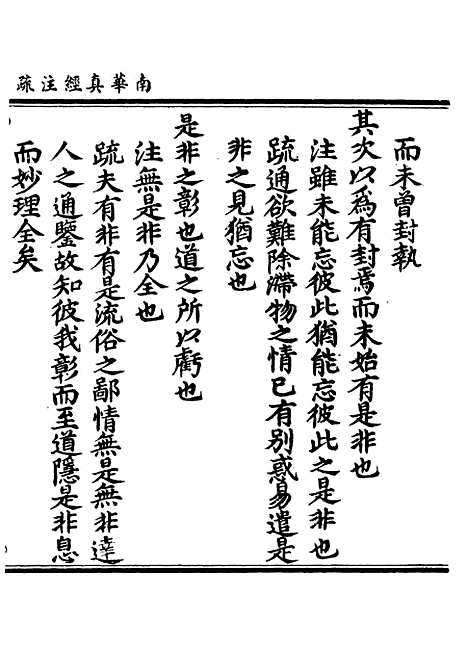 南華真經注疏
而未曾封執
其次以為有封焉而未始有是非也
注雖未能忘彼此猶能忘彼此之是非也
疏通欲難除滯物之情已有別惑易遣是
非之見猶忘也
是非之彰也道之所以虧也
注無是非乃全也
疏夫有非有是流俗之鄙情無是無非達
人之通鑒故知彼我彰而至道隱是非息
而妙理全矣